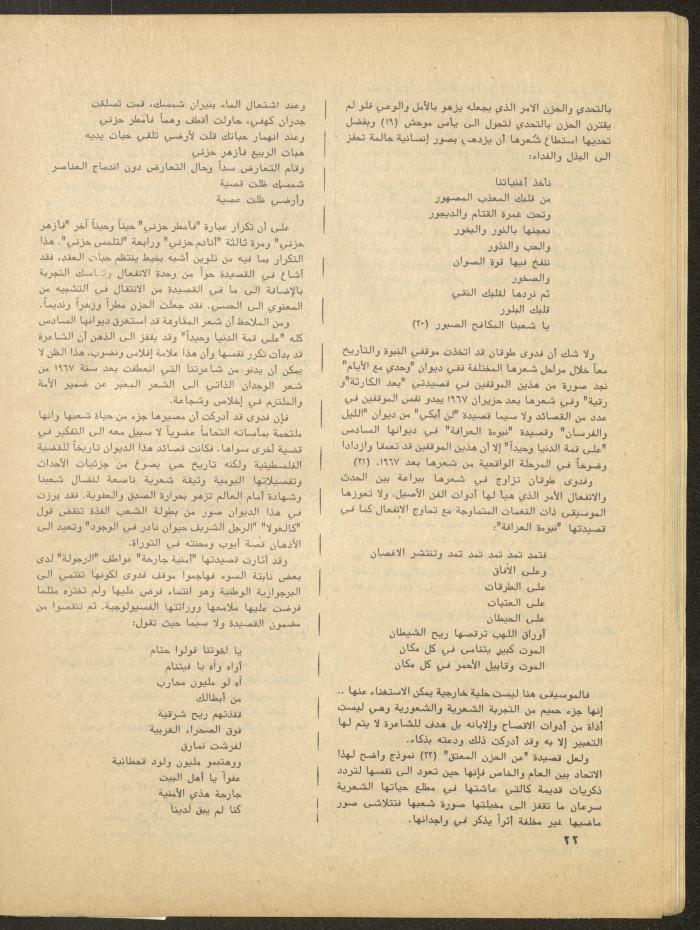 بالتحدي والحزن الامر الذي يجعله يزهو بالأمل والوعي فلو لم
يقترن الحزن بالتحدي لتحول الى يأس موحش (١٩) وبفضل
تحديها استطاع شعرها أن يزدهي بصور إنسانية حالمة تحفز
الى البذل والفداء:
نأخذ أغنياتنا
من قلبك المعذب المصهور
وتحت غمرة القتام والديجور
نعجنها بالنور والبخور
والحب والنذور
ننفخ فيها قوة الصوان
والصخور
ثم نردها لقلبك النقي
قلبك البلور
يا شعبنا المكافح الصبور (٢٠)
ولا شك أن فدوى طوقان قد اتخذت موقفي النبوة والتأريخ
معاً خلال مراحل شعرها المختلفة ففي ديوان "وحدي مع الأيام"
نجد صورة من هذين الموقفين في قصيدتي "بعد الكارثة"و
رقية" وفي شعرها بعد حزيران ١٩٦٧ يبدو نفس الموقفين في
عدد من القصائد ولا سيما قصيدة "لن أبكي" من ديوان "الليل
والفرسان" وقصيدة "نبوءة العرافة" في ديوانها السادس
"على قمة الدنيا وحيداً" إلا أن هذين الموقفين قد تعمقا وازدادا
وضوحاً في المرحلة الواقعية من شعرها بعد ١٩٦٧. (٢١)
وفدوى طوقان تزاوج في شعرها ببراعة بين الحدث
والانفعال الأمر الذي هيأ لها أدوات الفن الأصيل. ولا تعوزها
الموسيقى ذات النغمات المتماوجة مع تماوج الانفعال كما في
قصيدتها "نبوءة العرافة":
فتمد تمد تمد تمد تمد وتنتشر الاغصان
وعلى الأفاق
على الطرقات
على العتبات
على الحيطان
أوراق اللهب ترقصها ريح الشيطان
الموت كبير يتنامى في كل مكان
الموت وقابيل الأحمر في كل مكان
فالموسيقى هنا ليست حلية خارجية يمكن الاستغناء عنها ..
إنها جزء حميم من التجربة الشعرية والشعورية وهي ليست
أداة من أدوات الافصاح والإبانه بل هدف للشاعرة لا يتم لها
التعبير إلا به وقد أدركت ذلك ودعته بذكاء.
ولعل قصيدة "عن الحزن المعتق" (٢٢) نموذج واضح لهذا
الاتحاد بين العام والخاص فإنها حين تعود الى نفسها لتردد
ذكريات قديمة كالتي عاشتها في مطلع حياتها الشعرية
سرعان ما تقفز الى مخيلتها صورة شعبها فتتلاشى صور
ماضيها غير مخلفة أثراً يذكر في واجدانها.
٢٢
وعند اشتعال الماء بنيران شمسك، قمت تسلقت
جدران كهفي، حاولت أقطف وهماً فأمطر حزني
وعند انهمار حباتك قلت لأرضي تلقي حبات يديه
هبات الربيع فأزهر حزني
وقام التعارض سداً وحال التعارض دون اندماج العناصر
شمسك ظلت قصية
وأرضي ظلت عصية
على أن تكرار عبارة "فأمطر حزني" حيناً وحيناً آخر "فأزهر
حزني" ومرة ثالثة "أنادم حزني" ورابعة "لتلمس حزني". هذا
التكرار بما فيه من تلوين أشبه بخيط ينتظم حبات العقد، فقد
أشاع في القصيدة جواً من وحدة الانفعال وتماسك التجربة
بالإضافة الى ما في القصيدة من الانتقال في التشبيه من
المعنوي الى الحسي. فقد جعلت الحزن مطراً وزهراً ونديماً.
ومن الملاحظ أن شعر المقاومة قد استغرق ديوانها السادس
كله "على قمة الدنيا وحيداً" وقد يقفز الى الذهن أن الشاعرة
قد بدأت تكرر نفسها وأن هذا علامة إفلاس ونضوب. هذا الظن لا
يمكن أن يدنو من شاعرتنا التي انعطفت بعد سنة ١٩٦٧ من
شعر الوجدان الذاتي الى الشعر المعبر عن ضمير الأمة
والملتزم في إخلاص وشجاعة.
فإن فدوى قد أدركت أن مصيرها جزء من حياة شعبها وانها
ملتحمة بمأساته التحاماً عضوياً لا سبيل معه الى التفكير في
قضية أخرى سواها. فكانت قصائد هذا الديوان تاريخاً للقضية
الفلسطينية ولكنه تاريخ حي يصوغ من جزئيات الأحداث
وتفصيلاتها اليومية وثيقة شعرية ناصعة لنضال شعبنا
وشهادة أمام العالم تزهو بحرارة الصدق والعفوية. فقد برزت
في هذا الديوان صور من بطولة الشعب الفذة تنقض قول
"كالغولا" "الرجل الشريف حيوان نادر في الوجود" وتعيد الى
الأذهان قصة أيوب ومحنته في التوراة.
وقد أثارت قصيدتها "أمنية جارحة" عواطف "الرجولة" لدى
بعض نابتة السوء فهاجموا موقف فدوى لكونها تنتمي الى
البرجوازية الوطنية وهو انتماء فرض عليها ولم تختره مثلما
فرضت عليها ملامحها ووراثتها الفسيولوجية. ثم تنقصوا من
مضمون القصيدة ولا سيما حيث تقول:
يا اخوتنا قولوا حتام
أواه وآه يا فيتنام
آه لو مليون محارب
من أبطالك
تقذفهم ريح شرقية
فوق الصحراء الغربية
لفرشت نمارق
ووهبتمو مليون ولود قحطانية
عفواً يا أهل البيت
جارحة هذي الأمنية
كنا لم يبق لدينا